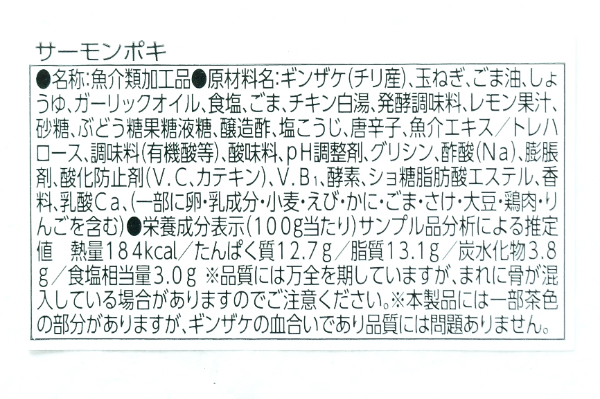 サーモンポキ
●名称:魚介類加工品●原材料名:ギンザケ(チリ産)、玉ねぎ、ごま油、しょ
うゆ、ガーリックオイル、食塩、ごま、チキン白湯、発酵調味料、レモン果汁、
砂糖、ぶどう糖果糖液糖、醸造酢、塩こうじ、唐辛子、魚介エキス/トレハ
ロース、調味料(有機酸等)、酸味料、pH調整剤、グリシン、酢酸(Na)、膨脹
剤、酸化防止剤(V.C、カテキン)、V.B₁、酵素、ショ糖脂肪酸エステル、香
料、乳酸Ca、(一部に卵・乳成分・小麦・えび・かに・ごま・さけ・大豆・鶏肉・り
んごを含む)●栄養成分表示(100g当たり)サンプル品分析による推定
値 熱量184kcal/たんぱく質12.7g/脂質13.1g/炭水化物3.8
g/食塩相当量3.0g ※品質には万全を期していますが、まれに骨が混
入している場合がありますのでご注意ください。※本製品には一部茶色
の部分がありますが、ギンザケの血合いであり品質には問題ありません。